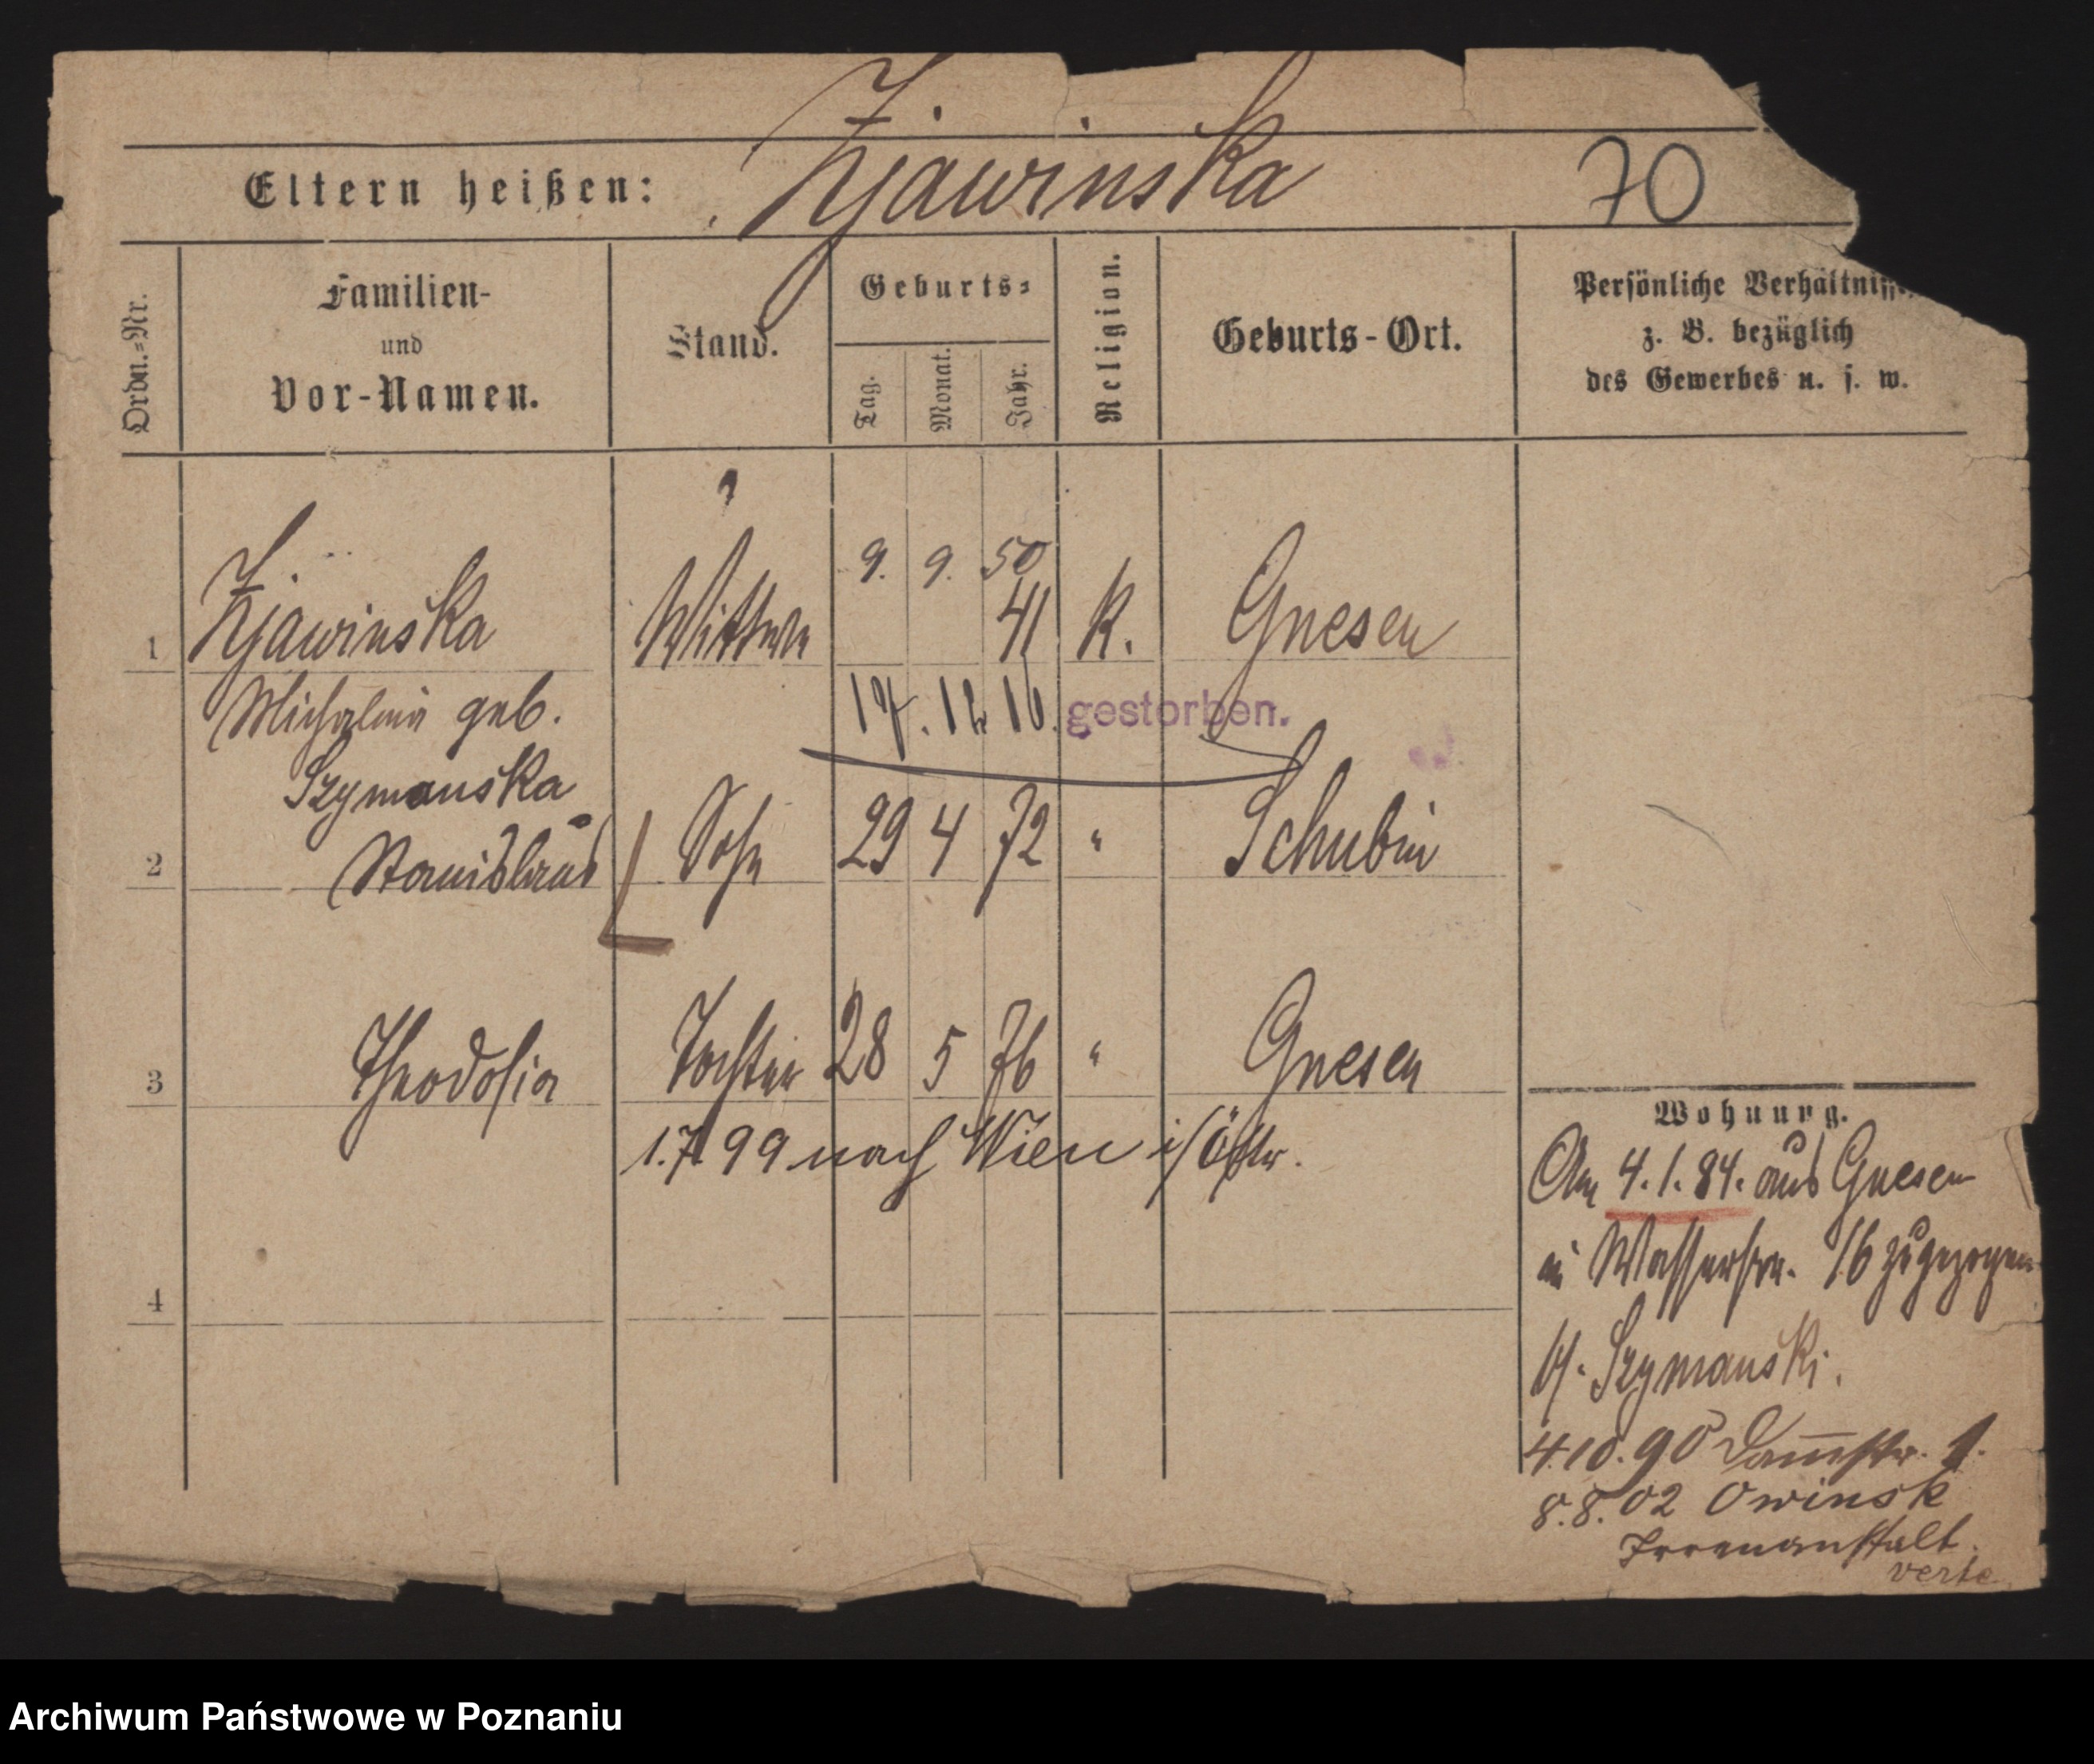 Zjawinska
Eltern heißen:
70
Ordn.=Nr.
Familien-
und
Vor-Namen.
Stand.
Geburts=
Tag.
Monat.
Jahr.
Religion.
Geburts-Ort.
Persönliche Verhältnisse
z. B. bezüglich
des Gewerbes u. s. w.
9. 9. 50
1 Zjawinska Wittwe 41 K. Gnesen
Michalina geb. 17. 12 16. gestorben.
Szymanska
2 Stanislaus Sohn 29 4 72 " Schubin
3 Theodosia Tochter 28 5 76 " Gnesen
1.7.99 nach Wien i/Östr.
4
Wohnung.
Am 4.1.84. aus Gnesen
in Wasserstr. 16 zugezogen
b/. Szymanski.
4.10.90 Dammstr. 1.
8.8.02 Owinsk
Irrenanstalt.
verte
Archiwum Państwowe w Poznaniu